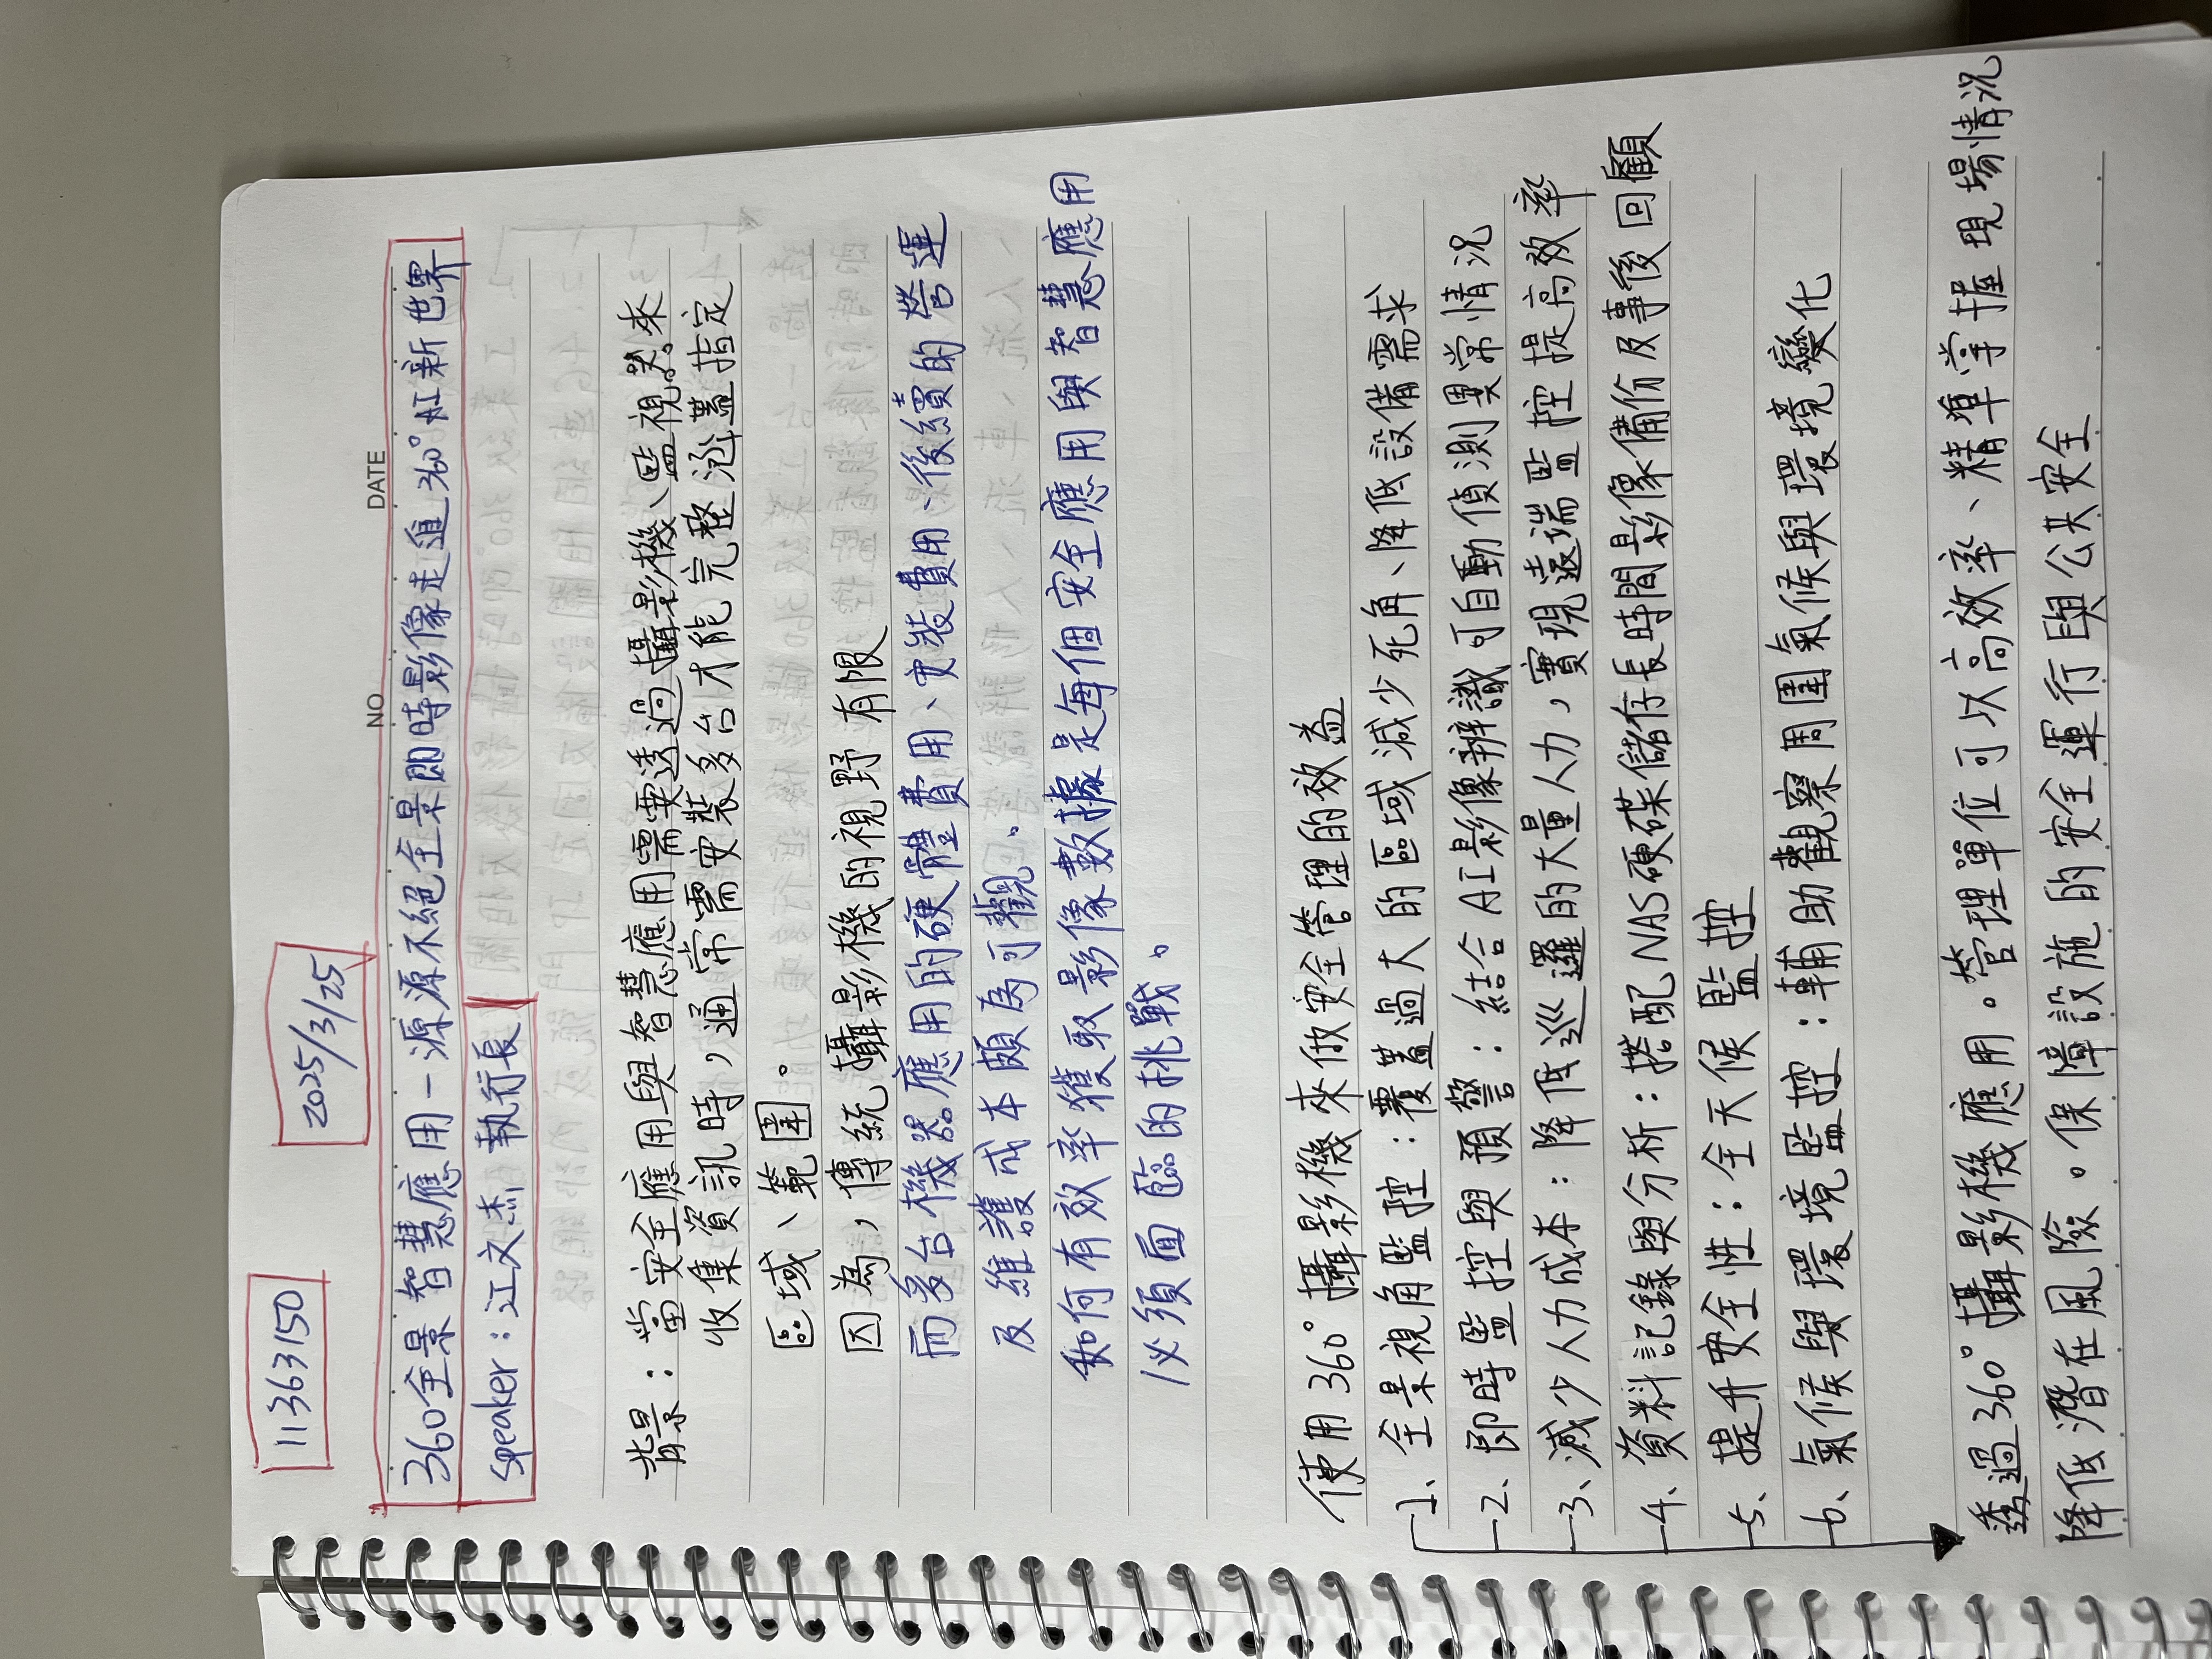 11363150
2025/3/25
NO DATE
360全景智慧應用-源源不絕全景即時影像走進360°AI新世界
speaker:江文杰 執行長
背景:當安全應用與智慧應用需要透過攝影機、監視器來
收集資訊時,通常需安裝多台才能完整涵蓋指定
區域、範圍。
因為,傳統攝影機的視野有限
而多台機器應用的硬體費用、安裝費用、後續的營運
及維護成本頗為可觀。
如何有效率獲取影像數據是每個安全應用與智慧應用
必須面臨的挑戰。
使用360°攝影機來做安全管理的效益
1、全景視角監控:覆蓋過大的區域減少死角、降低設備需求
2、即時監控與預警:結合AI影像辨識可自動偵測異常情況
3、減少人力成本:降低巡邏的大量人力,實現遠端監控提高效率
4、資料記錄與分析:搭配NAS硬碟儲存長時間影像備份及事後回顧
5、提升安全性:全天候監控
6、氣候與環境監控:輔助觀察周圍氣候與環境變化
透過360°攝影機應用。管理單位可以高效率、精準掌握現場情況
降低潛在風險。保障設施的安全運行與公共安全